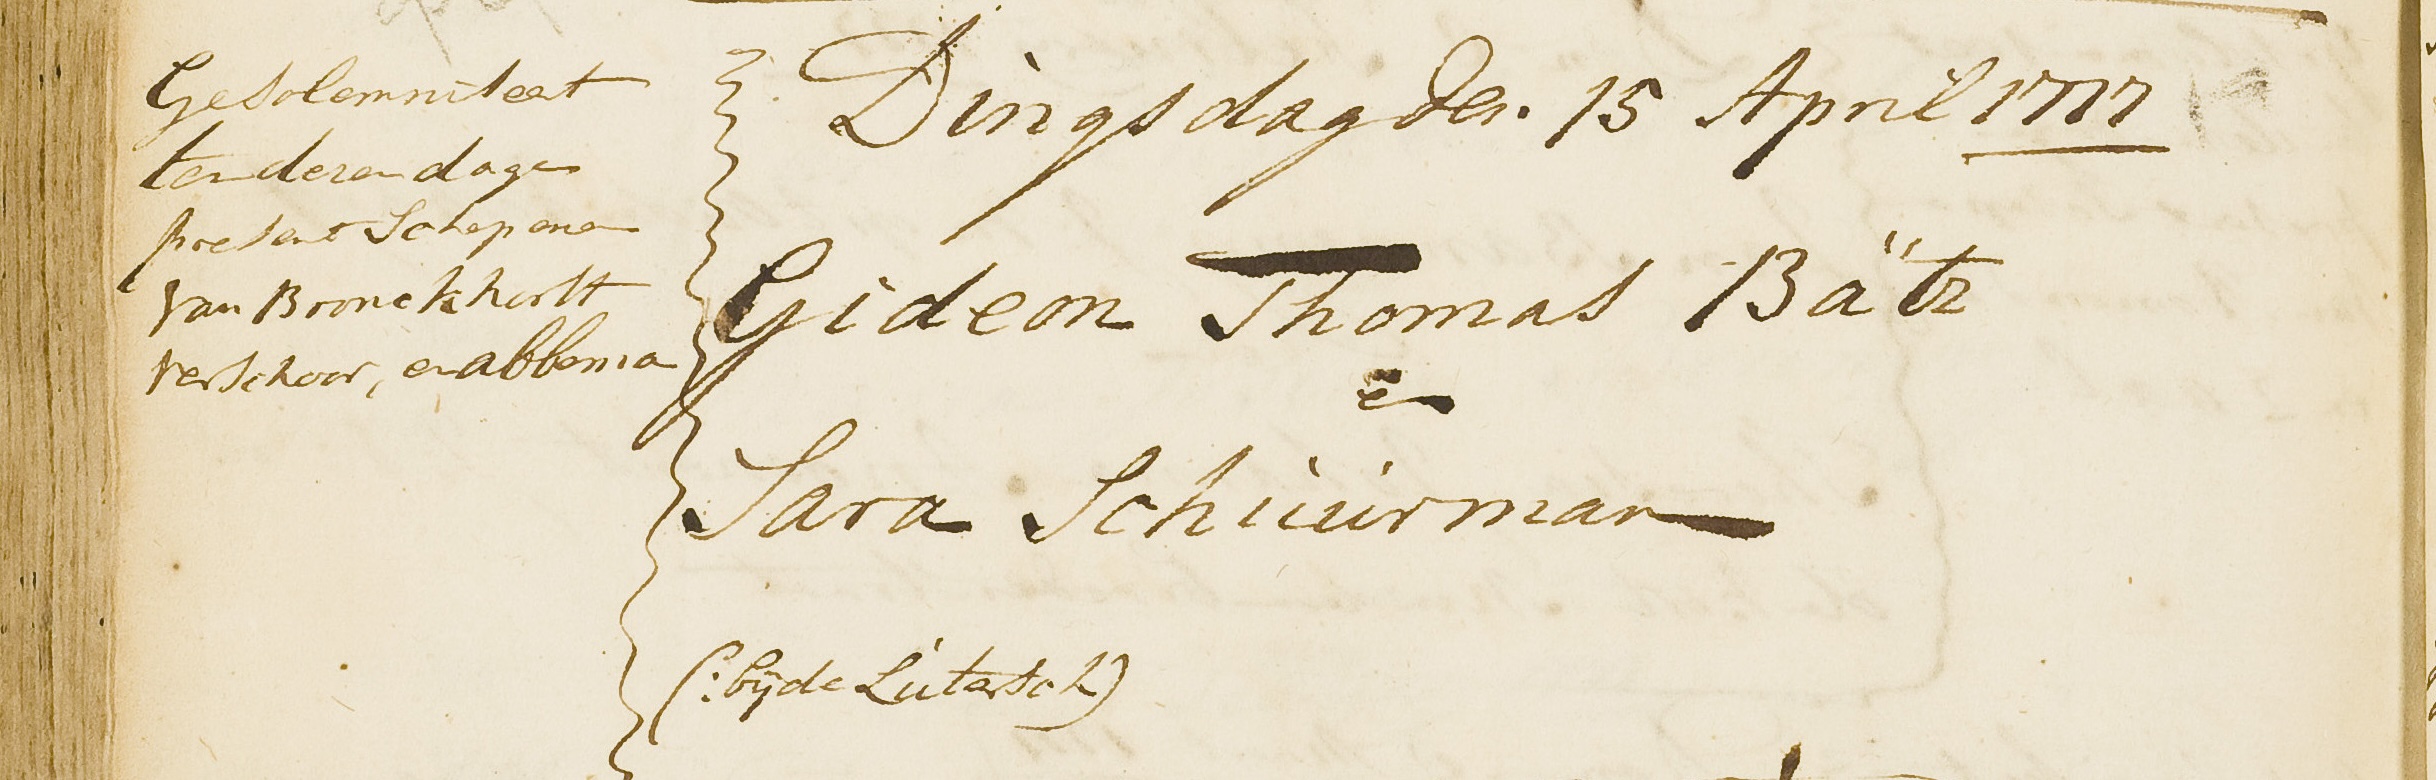 Gesolemniseert
ten deezen dage
present Schepenen
Van Bronckhorst
Verschoor, en abbema
Dingsdag den. 15 April 1777
Gideon Thomas Bätz
en
Sara Schuurman
(: bijde Luttersch)